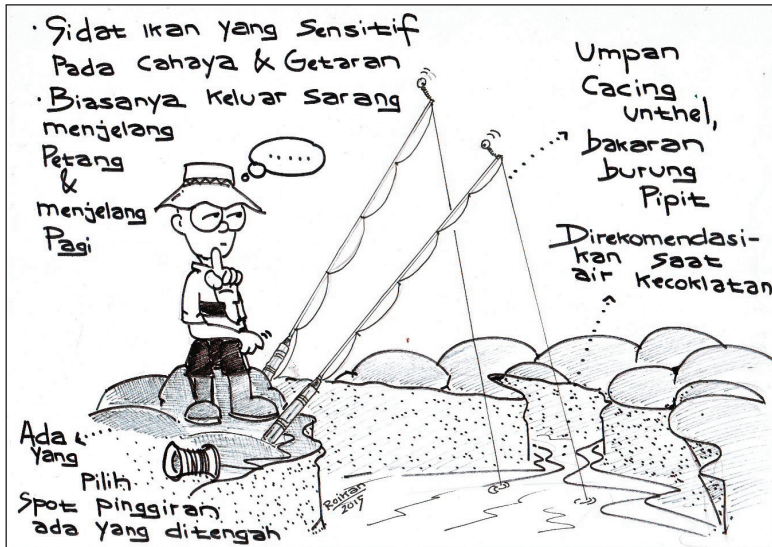 · Sidat ikan yang sensitif
Pada cahaya & Getaran
· Biasanya keluar sarang
menjelang
Petang
&
menjelang
Pagi
.....
Umpan
Cacing
unthel,
bakaran
burung
Pipit
Direkomendasi-
kan saat
air kecoklatan
Ada
yang
Pilih
Spot pinggiran
ada yang ditengah
Roikan
2015